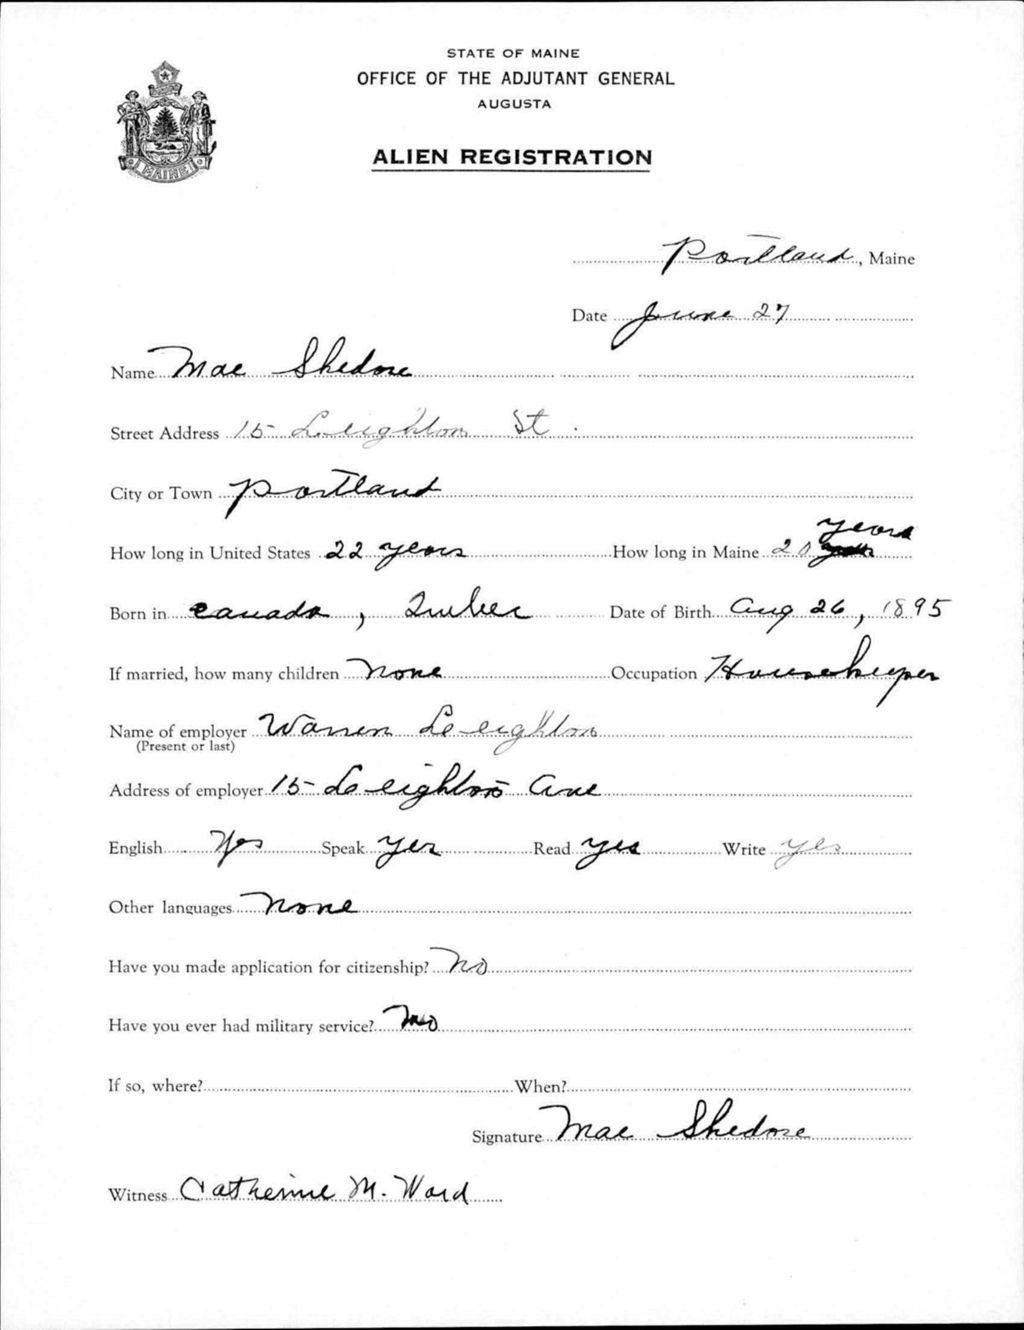 STATE OF MAINE
OFFICE OF THE ADJUTANT GENERAL
AUGUSTA
MAINE
ALIEN REGISTRATION
Portland, Maine
Date June 27
Name Mae Shedore
Street Address 15 Leighton St.
City or Town Portland
How long in United States 22 years How long in Maine 20 years
Born in Canada, Quebec Date of Birth Aug 26, 1895
If married, how many children None Occupation Housekeeper
Name of employer Warren Leighton
(Present or last)
Address of employer 15 Leighton Ave
English Yes Speak yes Read yes Write yes
Other languages None
Have you made application for citizenship? No
Have you ever had military service? No
If so, where? When?
Signature Mae Shedore
Witness Catherine M. Ward